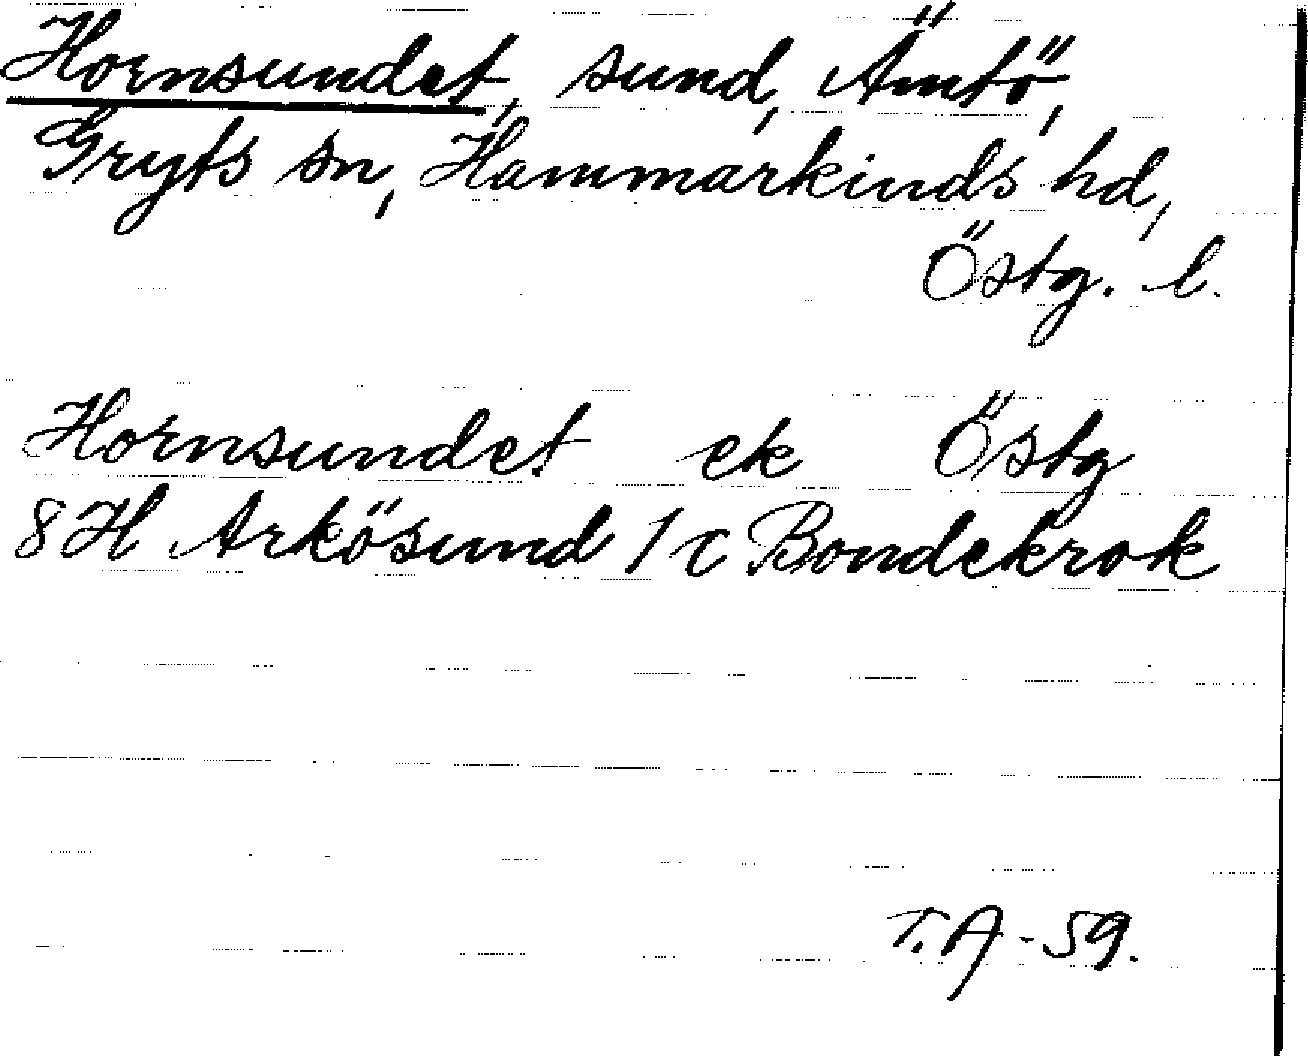 Hornsundet, sund, Ämtö,
Gryts sn, Hammarkinds hd,
Östg. l.
Hornsundet ek Östg
8H Arkösund 1c Bondekrok
T.A-59.